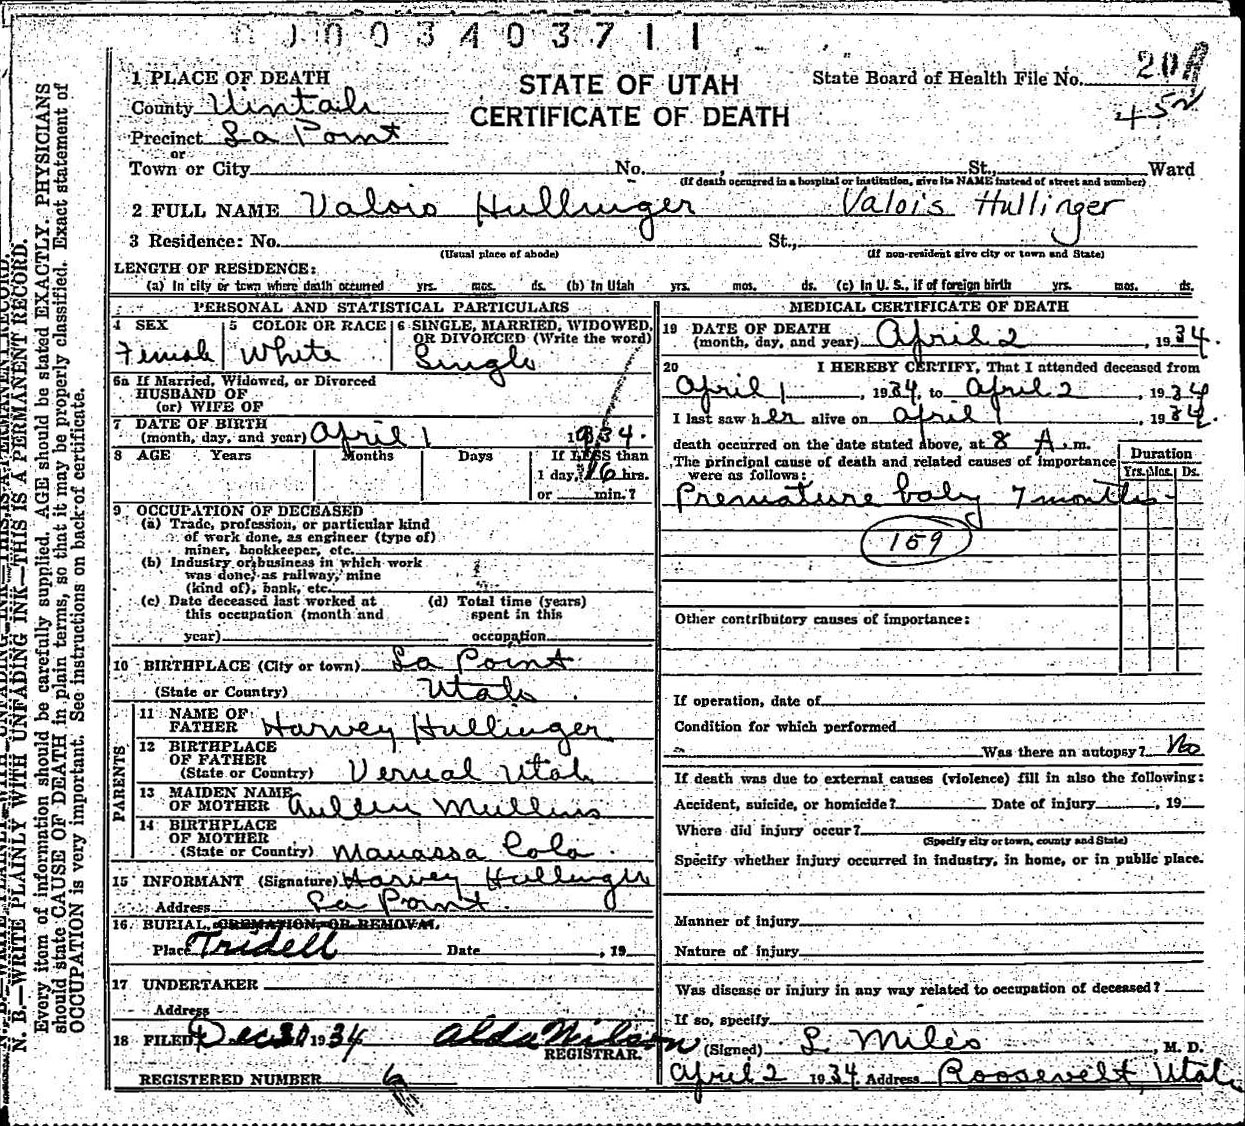 0003403711
1 PLACE OF DEATH
STATE OF UTAH
CERTIFICATE OF DEATH
State Board of Health File No. 20
452
County Uintah
Precinct La Point
or
Town or City No. St., Ward
(If death occurred in a hospital or institution, give its NAME instead of street and number)
2 FULL NAME Valois Hullinger Valois Hullinger
3 Residence: No. St.,
(Usual place of abode) (If non-resident give city or town and State)
LENGTH OF RESIDENCE:
(a) In city or town where death occurred yrs. mos. ds. (b) In Utah yrs. mos. ds. (c) In U. S., if of foreign birth yrs. mos. ds.
PERSONAL AND STATISTICAL PARTICULARS
4 SEX
Female
5 COLOR OR RACE
White
6 SINGLE, MARRIED, WIDOWED, OR DIVORCED (Write the word)
Single
6a If Married, Widowed, or Divorced
HUSBAND OF
(or) WIFE OF
7 DATE OF BIRTH
(month, day, and year) April 1 1934.
8 AGE Years Months Days If LESS than
1 day, 16 hrs.
or min.?
9 OCCUPATION OF DECEASED
(a) Trade, profession, or particular kind
of work done, as engineer (type of)
miner, bookkeeper, etc.
(b) Industry or business in which work
was done, as railway, mine
(kind of), bank, etc.
(c) Date deceased last worked at
this occupation (month and
year)
(d) Total time (years)
spent in this
occupation
10 BIRTHPLACE (City or town) La Point
(State or Country) Utah.
PARENTS
11 NAME OF
FATHER Harvey Hullinger
12 BIRTHPLACE
OF FATHER
(State or Country) Vernal Utah
13 MAIDEN NAME
OF MOTHER Mullins
14 BIRTHPLACE
OF MOTHER
(State or Country) Manassa Colo.
15 INFORMANT (Signature) Harvey Hullinger
Address La Point.
16. BURIAL, CREMATION, OR REMOVAL
Place Tridell Date , 19
17 UNDERTAKER
Address
18 FILED Dec 31 1934 Alda Wilson
REGISTRAR.
REGISTERED NUMBER 6
MEDICAL CERTIFICATE OF DEATH
19 DATE OF DEATH
(month, day, and year) April 2, 1934.
20 I HEREBY CERTIFY, That I attended deceased from
April 1, 1934, to April 2, 1934
I last saw her alive on April 1, 1934.
death occurred on the date stated above, at 8 A. m.
The principal cause of death and related causes of importance
were as follows:
Duration
Yrs. Mos. Ds.
Premature baby 7 months -
159
Other contributory causes of importance:
If operation, date of
Condition for which performed
Was there an autopsy? No
If death was due to external causes (violence) fill in also the following:
Accident, suicide, or homicide? Date of injury , 19
Where did injury occur?
(Specify city or town, county and State)
Specify whether injury occurred in industry, in home, or in public place.
Manner of injury
Nature of injury
Was disease or injury in any way related to occupation of deceased?
If so, specify
(Signed) L. Miles, M. D.
April 2 1934 Address Roosevelt, Utah
N. B.—WRITE PLAINLY WITH UNFADING INK—THIS IS A PERMANENT RECORD.
Every item of information should be carefully supplied. AGE should be stated EXACTLY. PHYSICIANS
should state CAUSE OF DEATH in plain terms, so that it may be properly classified. Exact statement of
OCCUPATION is very important. See instructions on back of certificate.